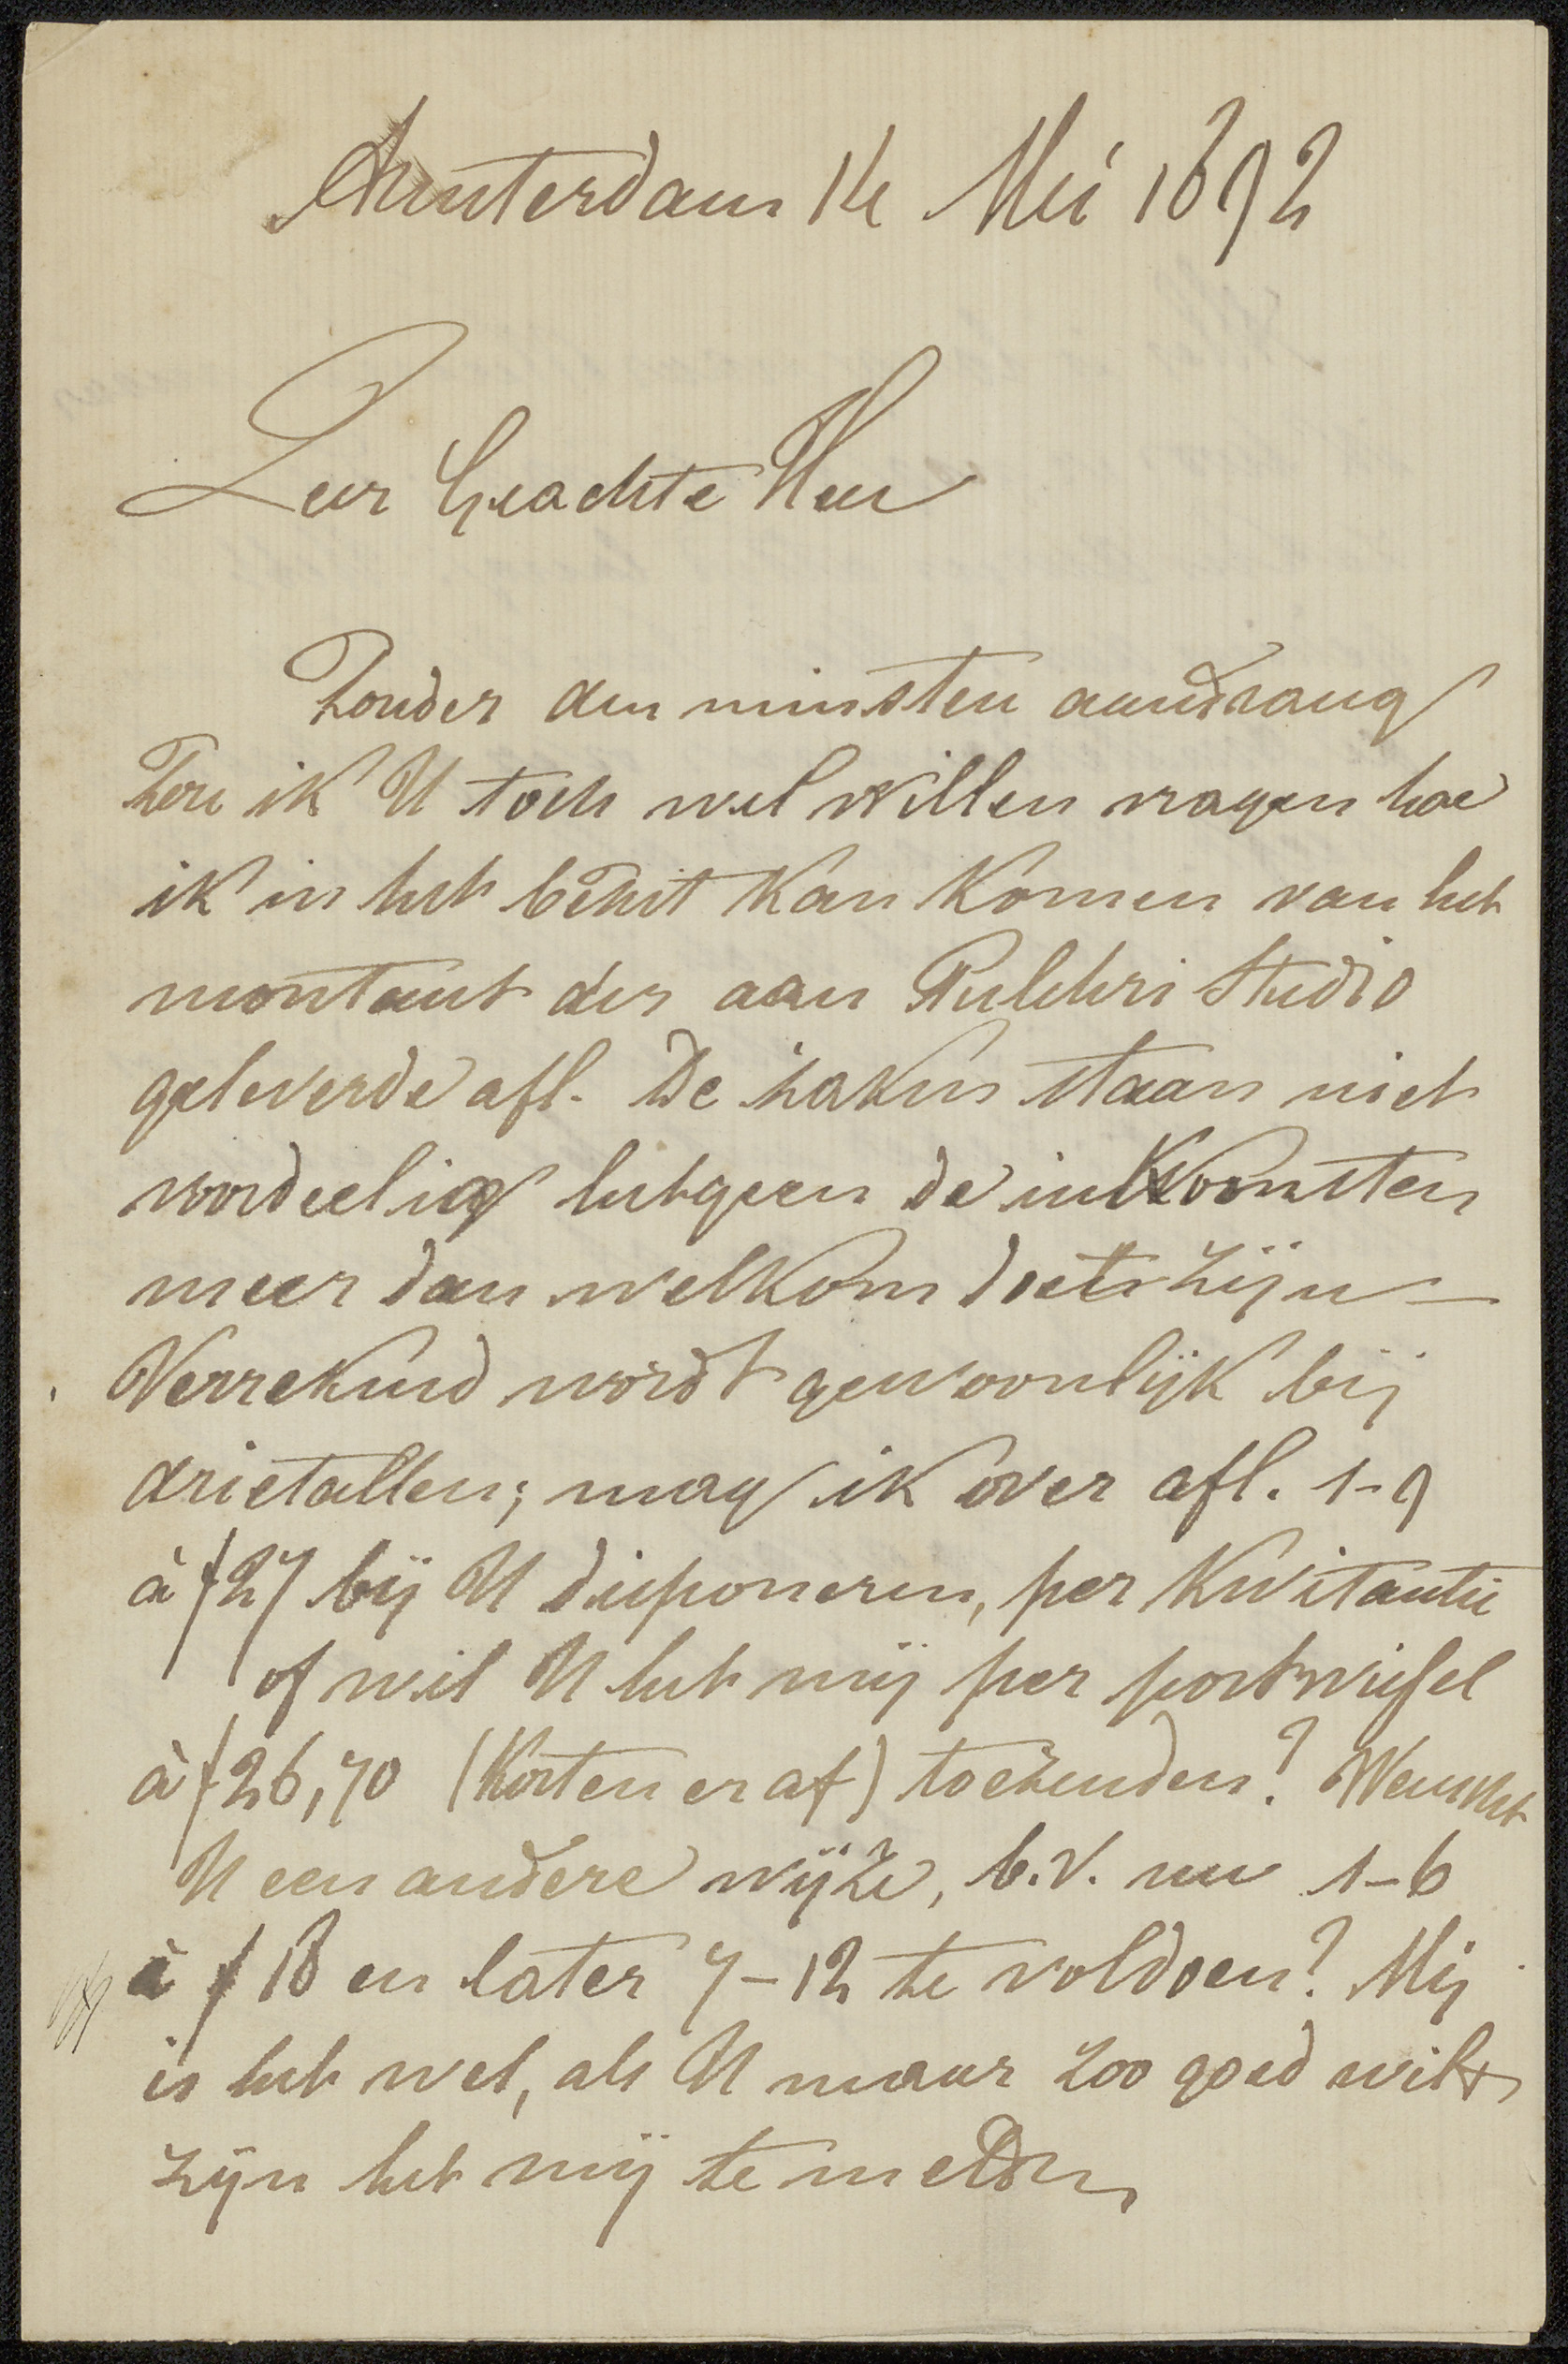 Amsterdam 14 Mei 1892
Zeer Geachte Heer
Zonder den minsten aandrang
zou ik U toch wel willen vragen hoe
ik in het bezit kan komen van het
montant der aan Pulchri Studio
geleverde afl. De zaken staan niet
voordeelig hetgeen de inkomsten
meer dan welkom doet zijn —
Verrekend wordt gewoonlijk bij
drietallen; mag ik over afl. 1-9
à f 27 bij U disponeren, per kwitantie
of wil U het mij per postwissel
à f 26,70 (Kosten er af) toezenden? Wenscht
U een andere wijze, b.v. nu 1-6
à f 18 en later 7-12 te voldoen? Mij
is het wel, als U maar zoo goed wilt
zijn het mij te melden